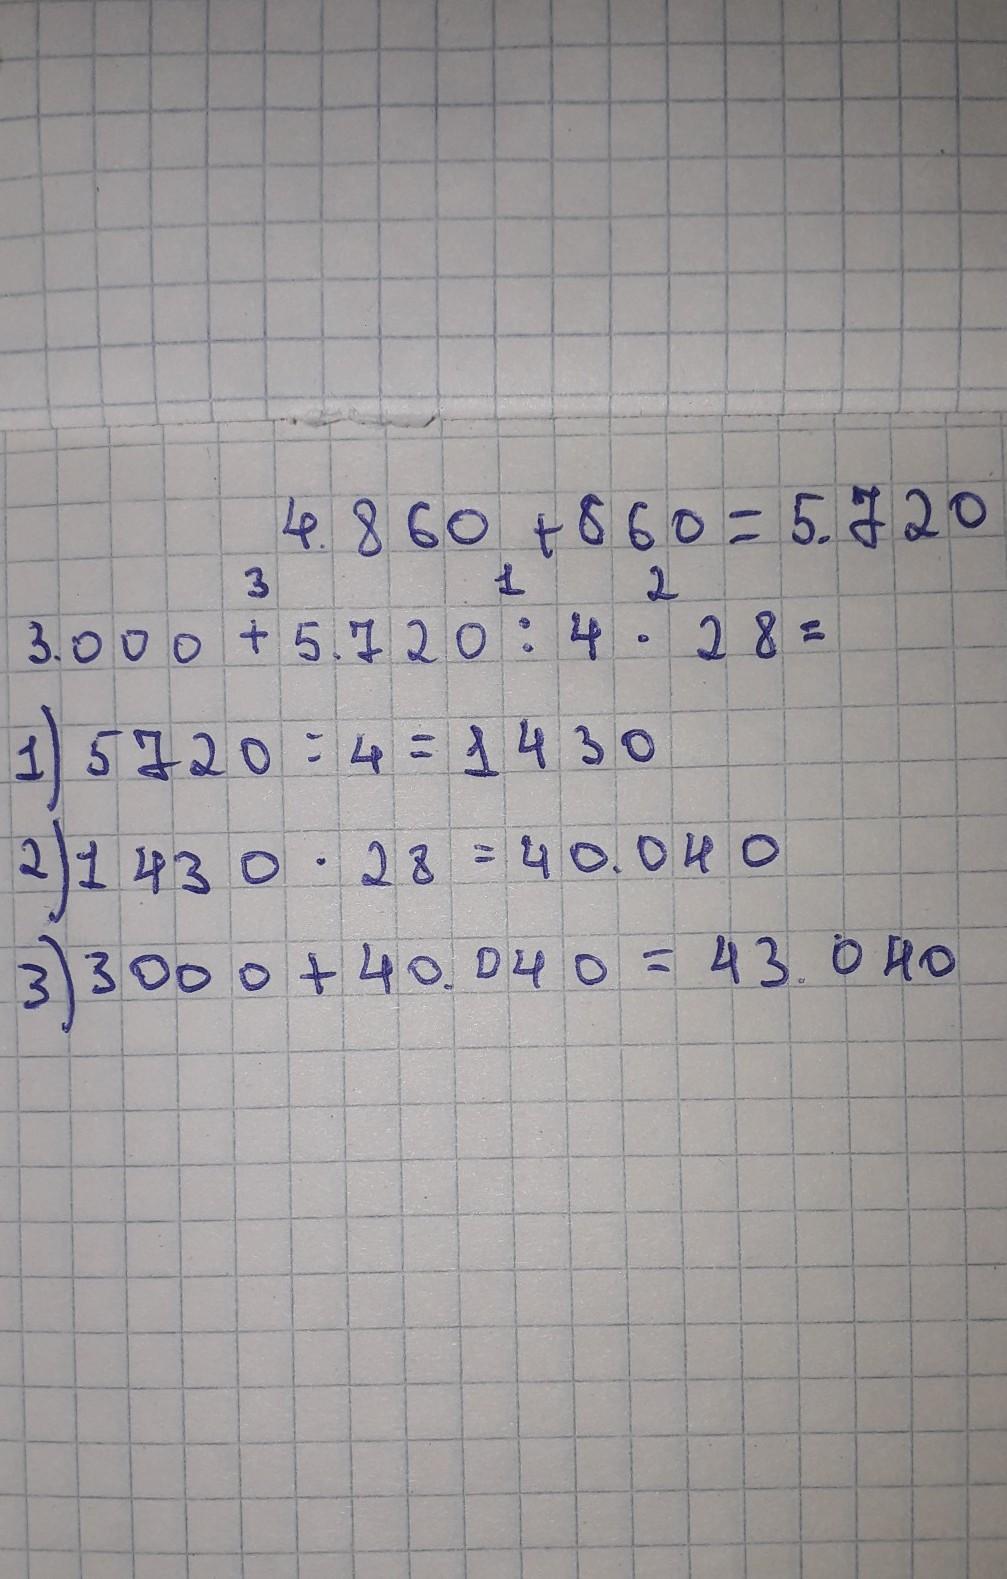 4.860 + 860 = 5.720
3 1 2
3.000 + 5.720 : 4 · 28 =
1) 5720 : 4 = 1430
2) 1430 · 28 = 40.040
3) 3000 + 40.040 = 43.040